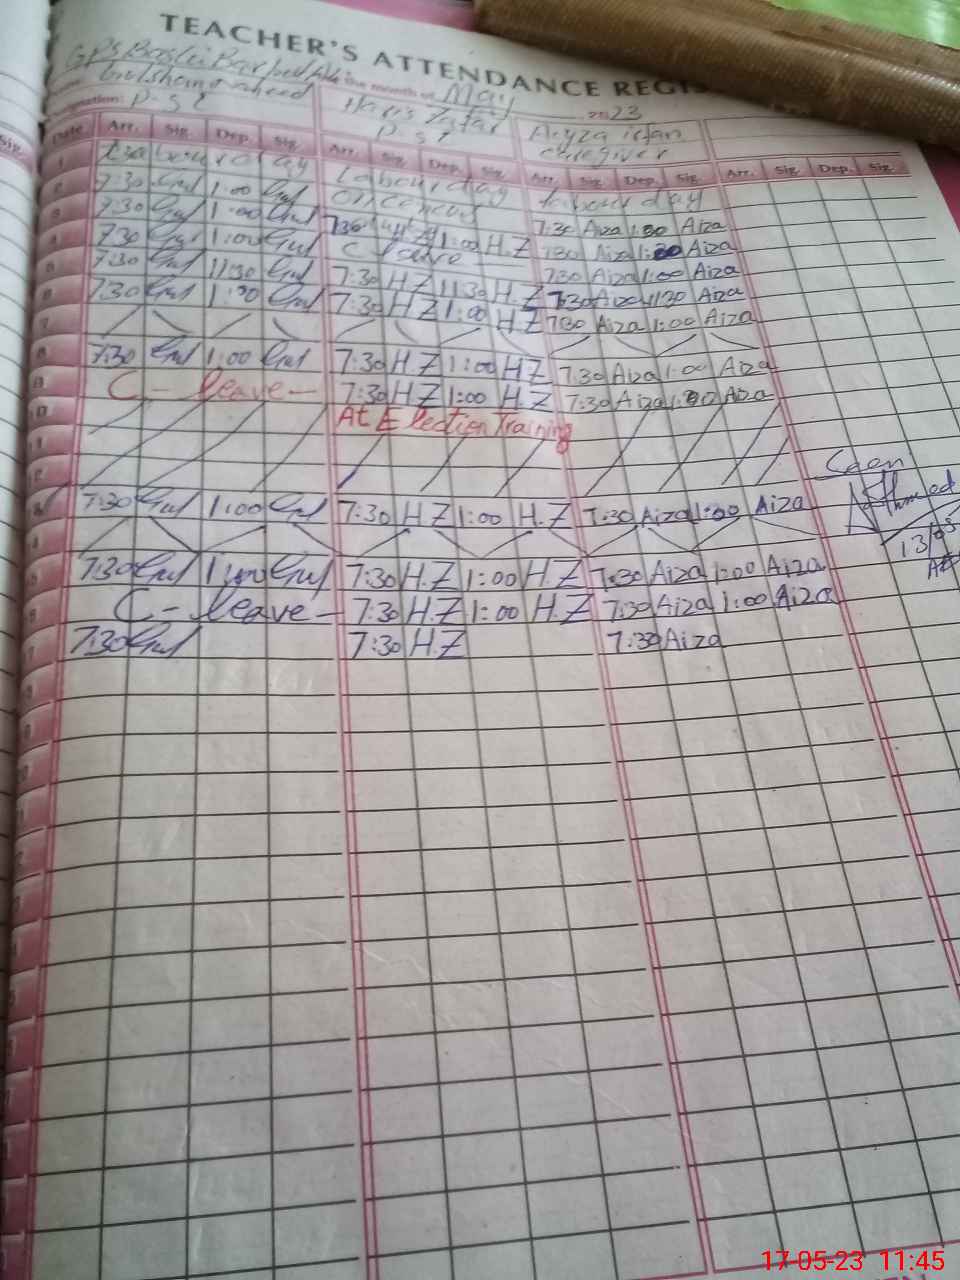 TEACHER'S ATTENDANCE REGIS
GPS the month of May 2023
Gulshan Haris Zafar Aeyza irfan
Designation: P.S.T P.S.T caregiver
Date Arr. Sig. Dep. Sig. Arr. Sig. Dep. Sig. Arr. Sig. Dep. Sig. Arr. Sig. Dep. Sig.
1 Labour day Labour day Labour day
2 7:30 Gul 1:00 Gul 7:30 Aiza 1:00 Aiza
3 7:30 Gul 1:00 Gul 7:30 1:00 H.Z 7:30 Aiza 1:00 Aiza
4 7:30 Gul 1:00 Gul C leave 7:30 Aiza 1:00 Aiza
5 7:30 Gul 11:30 Gul 7:30 H Z 11:30 H.Z 7:30 Aiza 11:30 Aiza
6 7:30 Gul 1:00 Gul 7:30 H Z 1:00 H Z 7:30 Aiza 1:00 Aiza
7
8 7:30 Gul 1:00 Gul 7:30 H.Z 1:00 H Z 7:30 Aiza 1:00 Aiza
9 C - leave - 7:30 H Z 1:00 H.Z 7:30 Aiza 1:00 Aiza
10 At Election Training
11
12 Seen
13 7:30 Gul 1:00 Gul 7:30 H Z 1:00 H.Z 7:30 Aiza 1:00 Aiza
14 13/05
15 7:30 Gul 1:00 Gul 7:30 H.Z 1:00 H Z 7:30 Aiza 1:00 Aiza
16 C - leave - 7:30 H.Z 1:00 H.Z 7:30 Aiza 1:00 Aiza
17 7:30 Gul 7:30 H.Z 7:30 Aiza
17-05-23 11:45